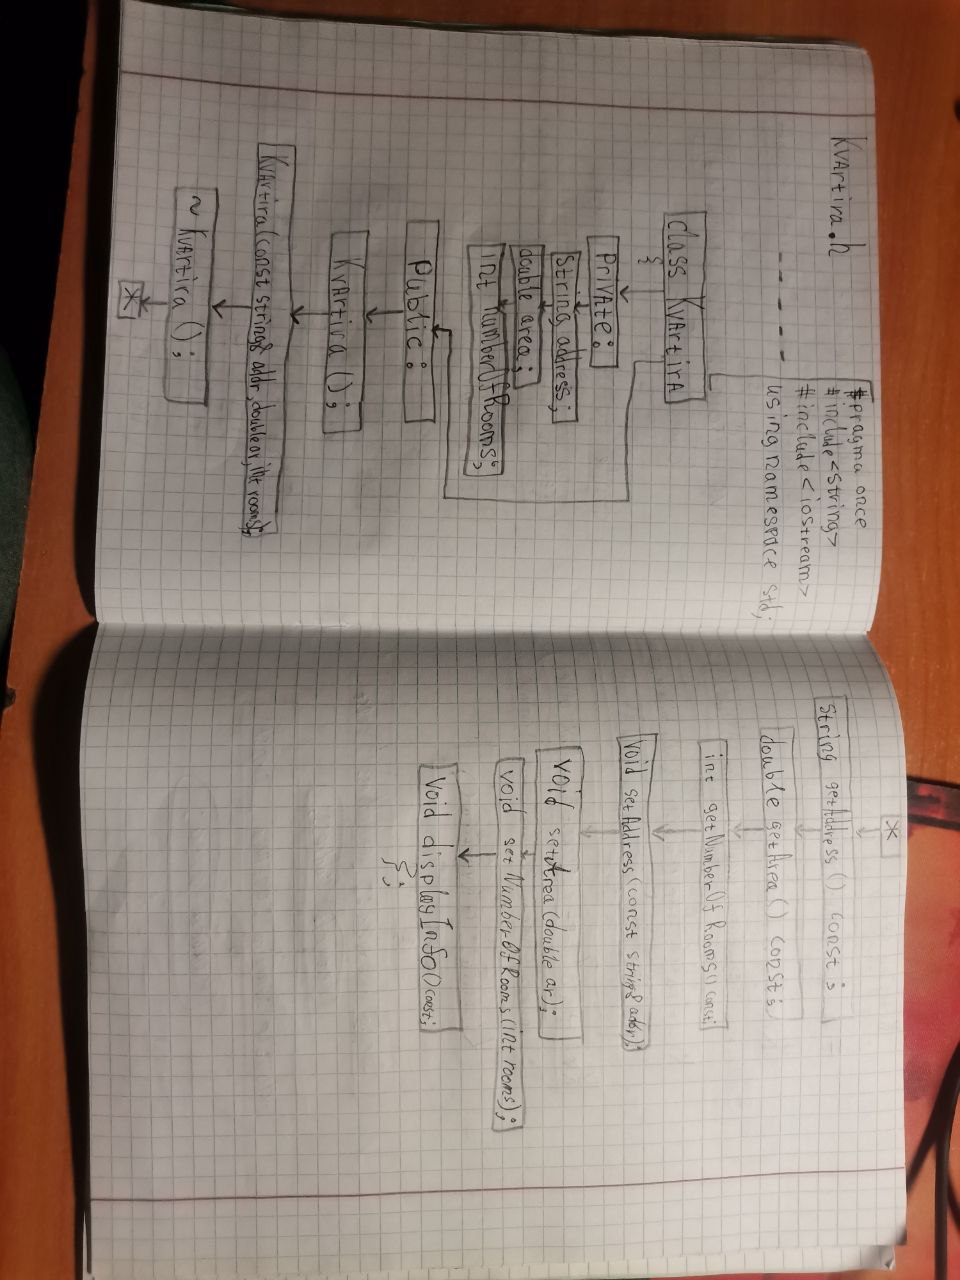 KVArtira.h
#pragma once
#include <string>
#include <iostream>
using namespace std;
class KVArtirA
{
PrivAte:
String address;
double area;
int numberOfRooms;
Public:
KvArtira();
KvArtira(const string& addr, double ar, int rooms);
~KvArtira();
*
*
String getAddress() const;
double getArea() const;
int getNumberOf Rooms() const;
Void setAddress(const string& addr);
void setArea(double ar);
void setNumberOfRooms(int rooms);
Void displayInfo() const;
};